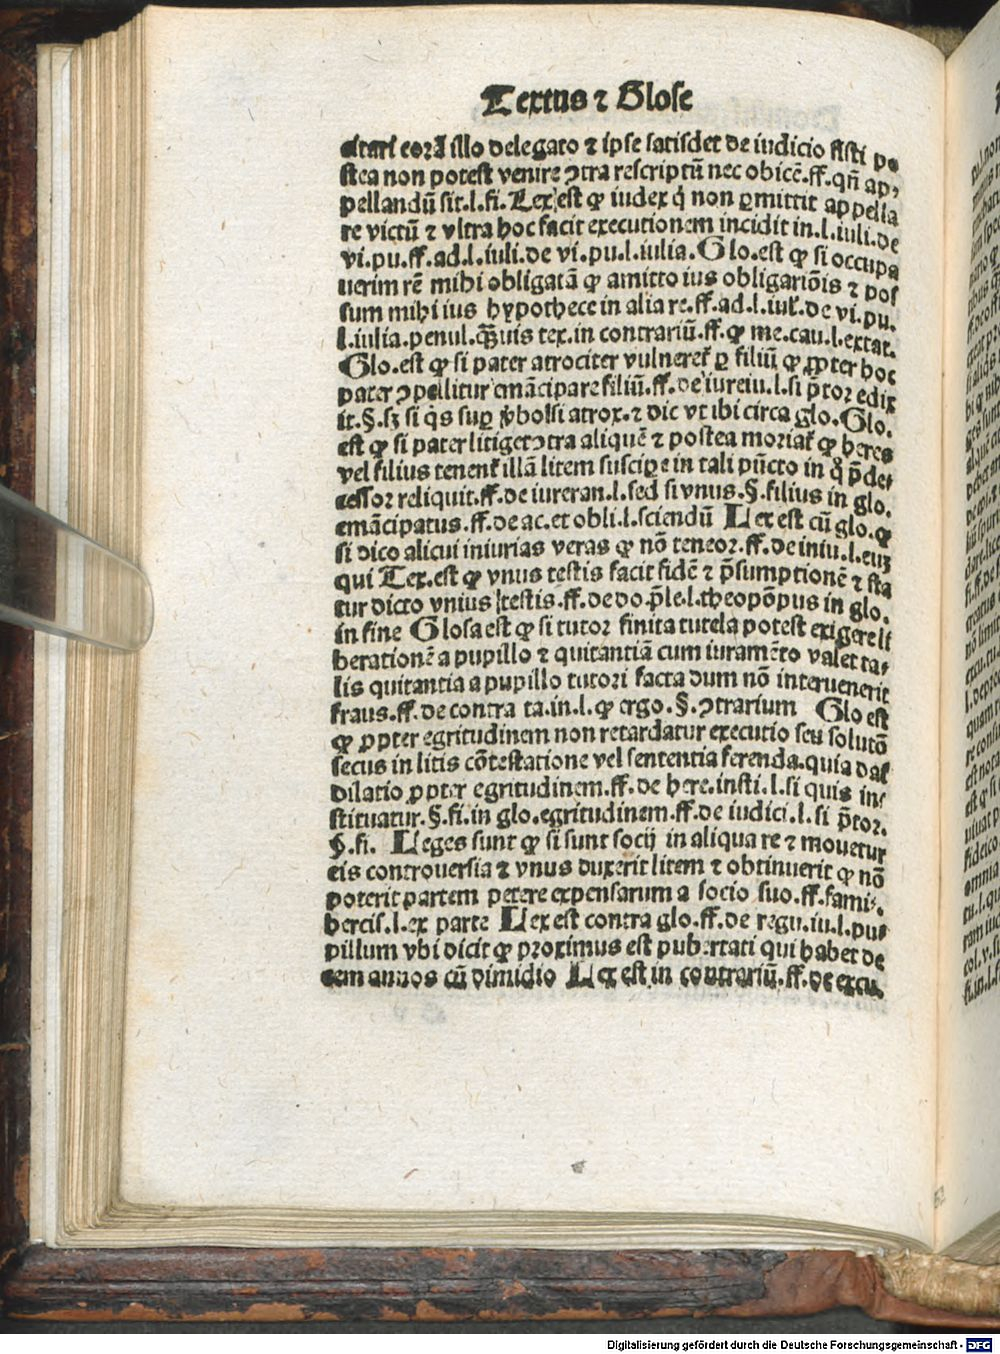 Textus ⁊ Glose
citari corā illo delegato ⁊ ipse satisdet de iudicio sisti po
stea non potest venire ↄtra rescriptū nec obicē.ff.qn̄ ap⸗
pellandū sit.l.fi. Lex est ꝙ iudex q̇ non ꝑmittit appella
re victū ⁊ vltra hoc facit executionem incidit in.l.iuli.de
vi.pu.ff.ad.l.iuli.de vi.pu.l.iulia. Glo.est ꝙ si occupa
uerim rē mihi obligatā ꝙ amitto ius obligatiōis ⁊ pos
sum mihi ius hypothece in alia re.ff.ad.l.iul̓.de vi.pu.
l.iulia.penul.q̄uis tex.in contrariū.ff.ꝙ me.cau.l.extat.
Glo.est ꝙ si pater atrociter vulneret̄ ꝑ filiū ꝙ ꝓpter hoc
pater ↄpellitur emācipare filiū.ff.de iureiu.l.si p̄tor edix
it.§.sꝫ si q̇s suꝑ v̓bo si atrox.⁊ dic vt ibi circa glo. Glo.
est ꝙ si pater litiget ↄtra aliquē ⁊ postea moriat̄ ꝙ heres
vel filius tenent̄ illā litem suscipe in tali pūcto in q̊ p̄de⸗
cessor reliquit.ff.de iureiran.l.sed si vnus.§.filius in glo.
emācipatus.ff.de ac.et obli.l.sciendū Lex est cū glo.ꝙ
si dico alicui iniurias veras ꝙ nō teneor.ff.de iniu.l.euꝫ
qui Tex.est ꝙ vnus testis facit fidē ⁊ p̄sumptionē ⁊ sta
tur dicto vnius testis.ff.de do.p̄le.l.theopōpus in glo.
in fine Glosa est ꝙ si tutor finita tutela potest exigere li
berationē a pupillo ⁊ quitantiā cum iuramēto valet ta⸗
lis quitantia a pupillo tutori facta dum nō interuenerit
fraus.ff.de contra ta.in.l.ꝙ ergo.§.ↄtrarium Glo est
ꝙ ꝓpter egritudinem non retardatur executio seu solutō
secus in litis cōtestatione vel sententia ferenda.quia dat̄
dilatio ꝓpter egritudinem.ff.de here.insti.l.si quis in⸗
stituatur.§.fi.in glo.egritudinem.ff.de iudici.l.si p̄tor.
§.fi. Leges sunt ꝙ si sunt socij in aliqua re ⁊ mouetur
eis controuersia ⁊ vnus duxerit litem ⁊ obtinuerit ꝙ nō
poterit partem petere expensarum a socio suo.ff.fami⸗.
hercis.l.ex parte Lex est contra glo.ff.de regu.iu.l.pu⸗
pillum vbi dicit ꝙ proximus est pubertati qui habet de
cem annos cū dimidio Lex est in contrariū.ff.de excu.
Digitalisierung gefördert durch die Deutsche Forschungsgemeinschaft - DFG